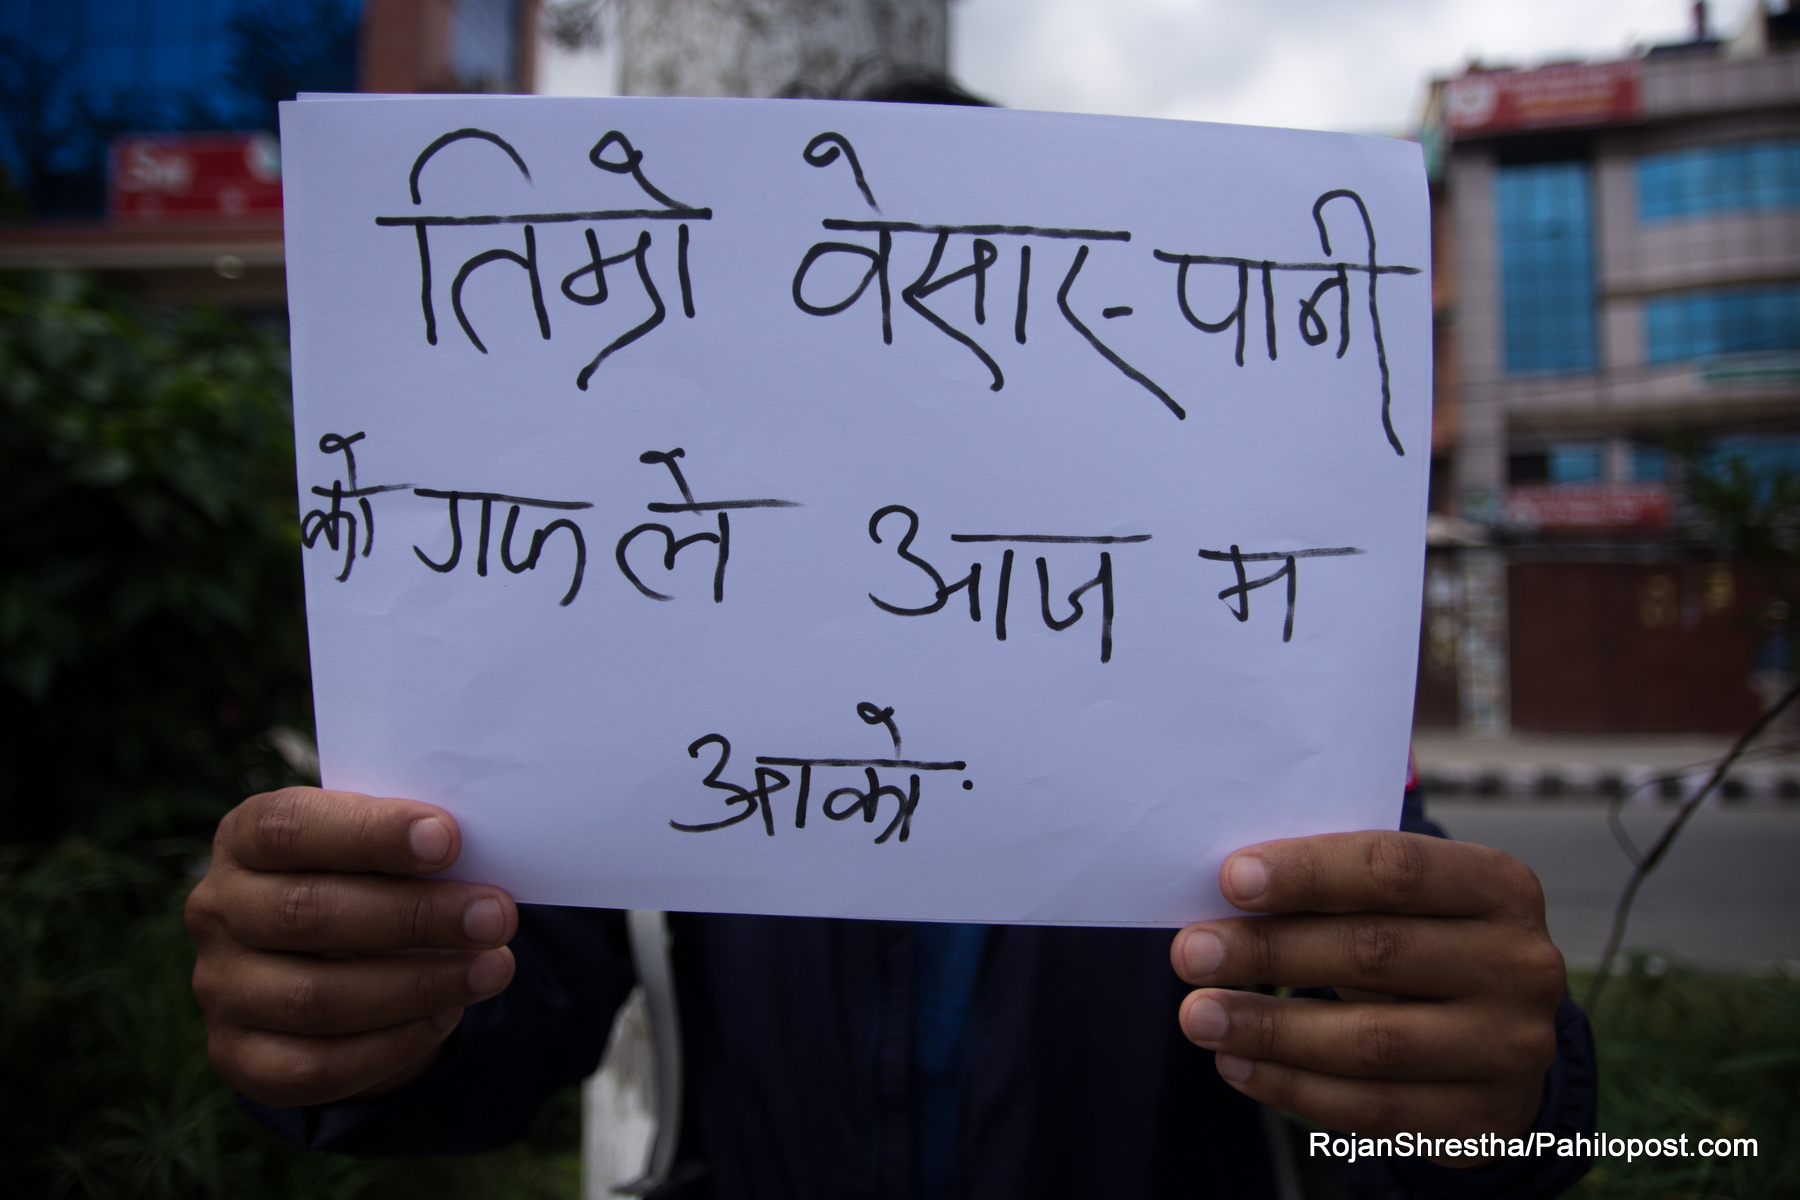 तिम्रो वेसार-पानी
को गफ ले आज म
आको.
RojanShrestha/Pahilopost.com